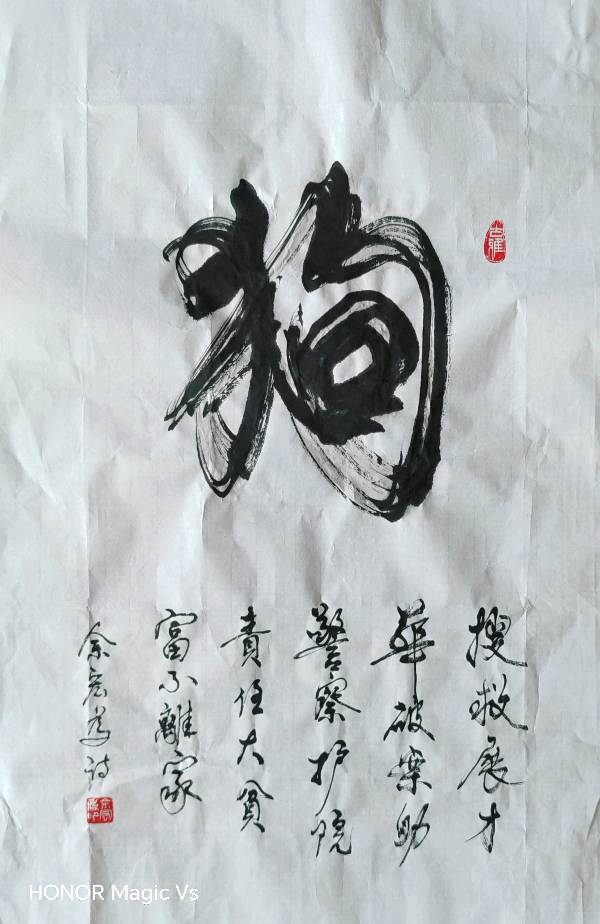 狗
搜救展才
華破案助
警察护院
責任大貧
富不離家
余宏為詩
HONOR Magic Vs